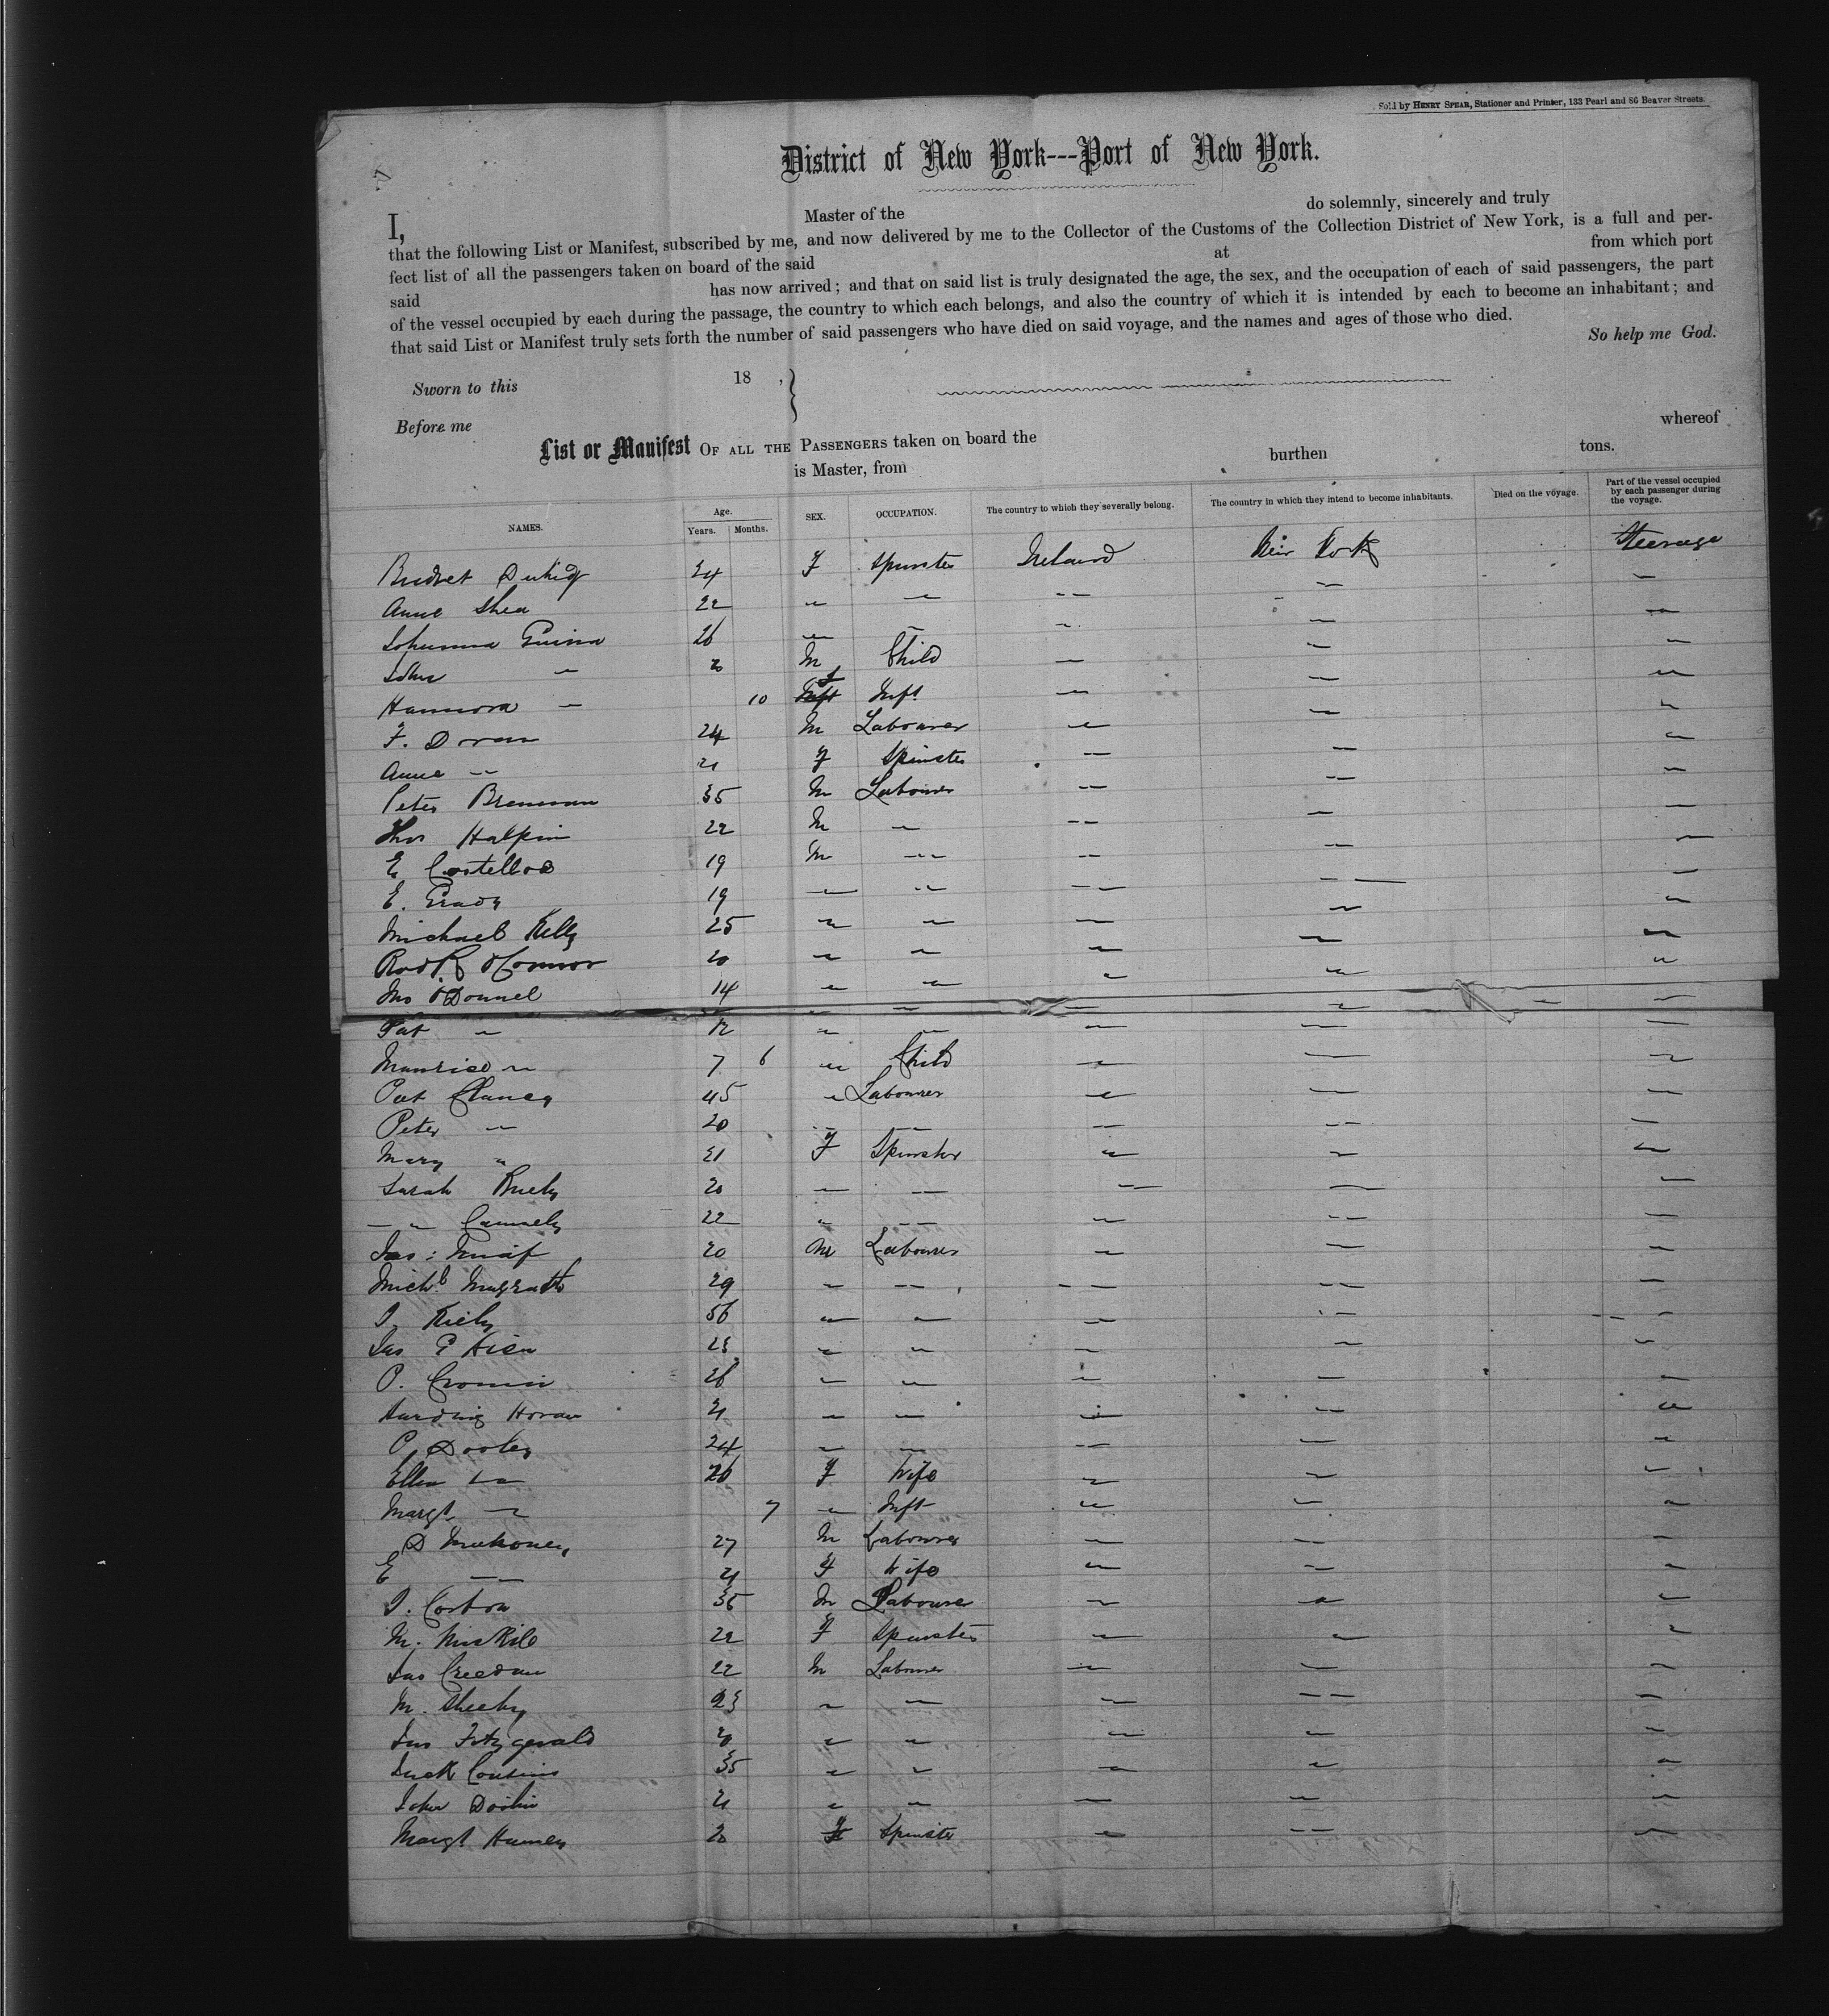 Sold by HENRY SPEAR, Stationer and Printer, 133 Pearl and 86 Beaver Streets.
District of New York---Port of New York.
I, Master of the do solemnly, sincerely and truly
that the following List or Manifest, subscribed by me, and now delivered by me to the Collector of the Customs of the Collection District of New York, is a full and per-
fect list of all the passengers taken on board of the said at from which port
said has now arrived; and that on said list is truly designated the age, the sex, and the occupation of each of said passengers, the part
of the vessel occupied by each during the passage, the country to which each belongs, and also the country of which it is intended by each to become an inhabitant; and
that said List or Manifest truly sets forth the number of said passengers who have died on said voyage, and the names and ages of those who died.
So help me God.
Sworn to this 18 ,
Before me
List or Manifest OF ALL THE PASSENGERS taken on board the whereof
is Master, from burthen tons.
NAMES. Age. Years. Months. SEX. OCCUPATION. The country to which they severally belong. The country in which they intend to become inhabitants. Died on the voyage. Part of the vessel occupied by each passenger during the voyage.
Bridget 24 F Spinster Ireland New York Steerage
Anne Shea 22 " " " " "
Johanna 26 " " " " "
John " M Child " " "
Hannora " 10 F Inft " " "
F. Doran 24 M Labourer " " "
Anne " 21 F Spinster " " "
Peter Brennan 35 M Labourer " " "
Thos Halpin 22 M " " " "
E Costelloe 19 M " " " "
E. Grady 19 " " " " "
Michael Kelly 25 " " " " "
O'Connor 20 " " " " "
O'Donnel 14 " " " " "
Pat " 12 " " " " "
Maurice " 7 6 " Child " " "
Pat Clancy 45 " Labourer " " "
Peter " 20 " " " " "
Mary " 21 F Spinster " " "
Sarah 20 " " " " "
" " 22 " " " " "
Jas: 20 M Labourer " " "
Michl Magrath 29 " " " " "
Riely 56 " " " " "
Jas 23 " " " " "
P. Cronin 26 " " " " "
Horan 21 " " " " "
P. Dooley 24 " " " " "
Ellen " 26 F Wife " " "
Margt " 7 " Inft " " "
D Mahoney 27 M Labourer " " "
E " 21 F Wife " " "
35 M Labourer " " "
M. 22 F Spinster " " "
Jas Creedan 22 M Labourer " " "
M. Sheehy 23 " " " " "
Jas Fitzgerald 20 " " " " "
Cousins 35 " " " " "
John 21 " " " " "
Margt 20 F Spinster " " "